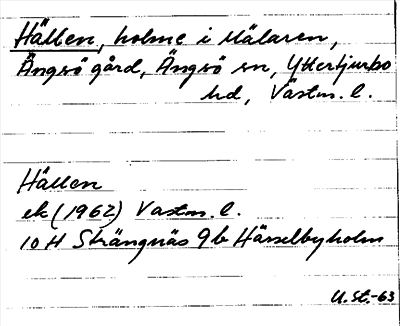 Hällen, holme i Mälaren,
Ängsö gård, Ängsö sn, Yttertjurbo
hd, Västm. l.
Hällen
ek (1962) Vastm. l.
10 H Strängnäs 9b Härselbyholm
U. St.-63